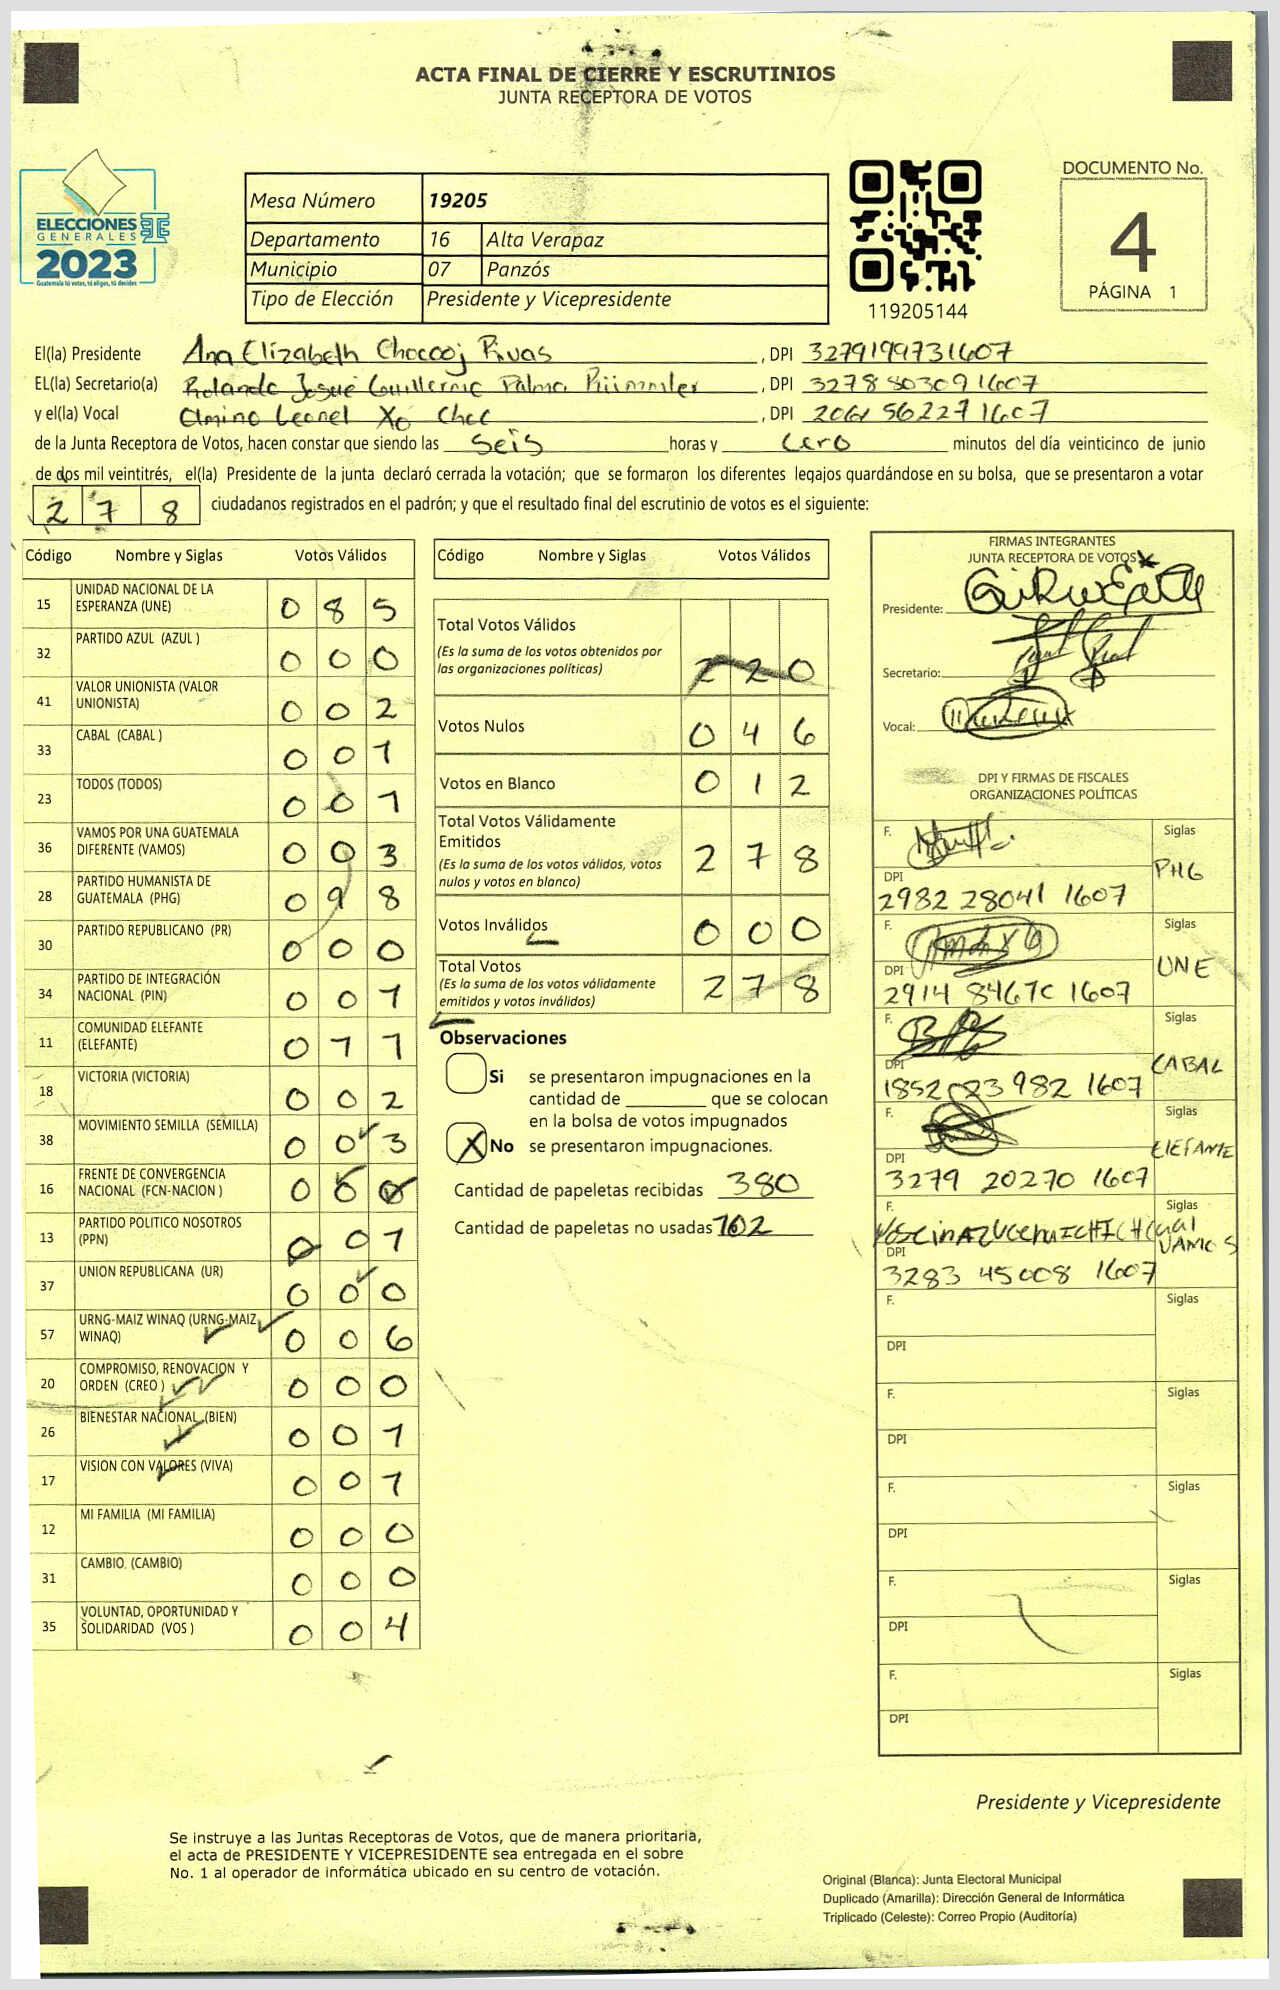 ACTA FINAL DE CIERRE Y ESCRUTINIOS
JUNTA RECEPTORA DE VOTOS
ELECCIONES
GENERALES
2023
Guatemala tú votes, tú eliges, tú decides
Mesa Número 19205
Departamento 16 Alta Verapaz
Municipio 07 Panzós
Tipo de Elección Presidente y Vicepresidente
119205144
DOCUMENTO No.
4
PÁGINA 1
El(la) Presidente Ana Elizabeth Choccoj Rivas, DPI 3279199731607
EL(la) Secretario(a) Rolando Josué Guillermo Palma, DPI 3278803091607
y el(la) Vocal Leonel Xo Choc, DPI 2061562271607
de la Junta Receptora de Votos, hacen constar que siendo las seis horas y cero minutos del día veinticinco de junio
de dos mil veintitrés, el(la) Presidente de la junta declaró cerrada la votación; que se formaron los diferentes legajos quardándose en su bolsa, que se presentaron a votar
278 ciudadanos registrados en el padrón; y que el resultado final del escrutinio de votos es el siguiente:
Código Nombre y Siglas Votos Válidos
15 UNIDAD NACIONAL DE LA ESPERANZA (UNE) 085
32 PARTIDO AZUL (AZUL ) 000
41 VALOR UNIONISTA (VALOR UNIONISTA) 002
33 CABAL (CABAL ) 001
23 TODOS (TODOS) 001
36 VAMOS POR UNA GUATEMALA DIFERENTE (VAMOS) 093
28 PARTIDO HUMANISTA DE GUATEMALA (PHG) 098
30 PARTIDO REPUBLICANO (PR) 000
34 PARTIDO DE INTEGRACIÓN NACIONAL (PIN) 001
11 COMUNIDAD ELEFANTE (ELEFANTE) 011
18 VICTORIA (VICTORIA) 002
38 MOVIMIENTO SEMILLA (SEMILLA) 003
16 FRENTE DE CONVERGENCIA NACIONAL (FCN-NACION ) 000
13 PARTIDO POLITICO NOSOTROS (PPN) 001
37 UNION REPUBLICANA (UR) 000
57 URNG-MAIZ WINAQ (URNG-MAIZ WINAQ) 006
20 COMPROMISO, RENOVACION Y ORDEN (CREO ) 000
26 BIENESTAR NACIONAL (BIEN) 001
17 VISION CON VALORES (VIVA) 001
12 MI FAMILIA (MI FAMILIA) 000
31 CAMBIO. (CAMBIO) 000
35 VOLUNTAD, OPORTUNIDAD Y SOLIDARIDAD (VOS ) 004
Código Nombre y Siglas Votos Válidos
Total Votos Válidos
(Es la suma de los votos obtenidos por
las organizaciones políticas) 220
Votos Nulos 046
Votos en Blanco 012
Total Votos Válidamente
Emitidos
(Es la suma de los votos válidos, votos
nulos y votos en blanco) 278
Votos Inválidos 000
Total Votos
(Es la suma de los votos válidamente
emitidos y votos inválidos) 278
Observaciones
Si se presentaron impugnaciones en la
cantidad de ________ que se colocan
en la bolsa de votos impugnados
X No se presentaron impugnaciones.
Cantidad de papeletas recibidas 380
Cantidad de papeletas no usadas 102
FIRMAS INTEGRANTES
JUNTA RECEPTORA DE VOTOS
Presidente:
Secretario:
Vocal:
DPI Y FIRMAS DE FISCALES
ORGANIZACIONES POLÍTICAS
F. Siglas
PHG
DPI
2982 28041 1607
F. Siglas
UNE
DPI
2914 84670 1607
F. Siglas
CABAL
DPI
1852 023 982 1607
F. Siglas
ElEFANTE
DPI
3279 20270 1607
F. Siglas
VAMOS
DPI
3283 45008 1607
F. Siglas
DPI
F. Siglas
DPI
F. Siglas
DPI
F. Siglas
DPI
F. Siglas
DPI
Presidente y Vicepresidente
Se instruye a las Juntas Receptoras de Votos, que de manera prioritaria,
el acta de PRESIDENTE Y VICEPRESIDENTE sea entregada en el sobre
No. 1 al operador de informática ubicado en su centro de votación.
Original (Blanca): Junta Electoral Municipal
Duplicado (Amarilla): Dirección General de Informática
Triplicado (Celeste): Correo Propio (Auditoría)